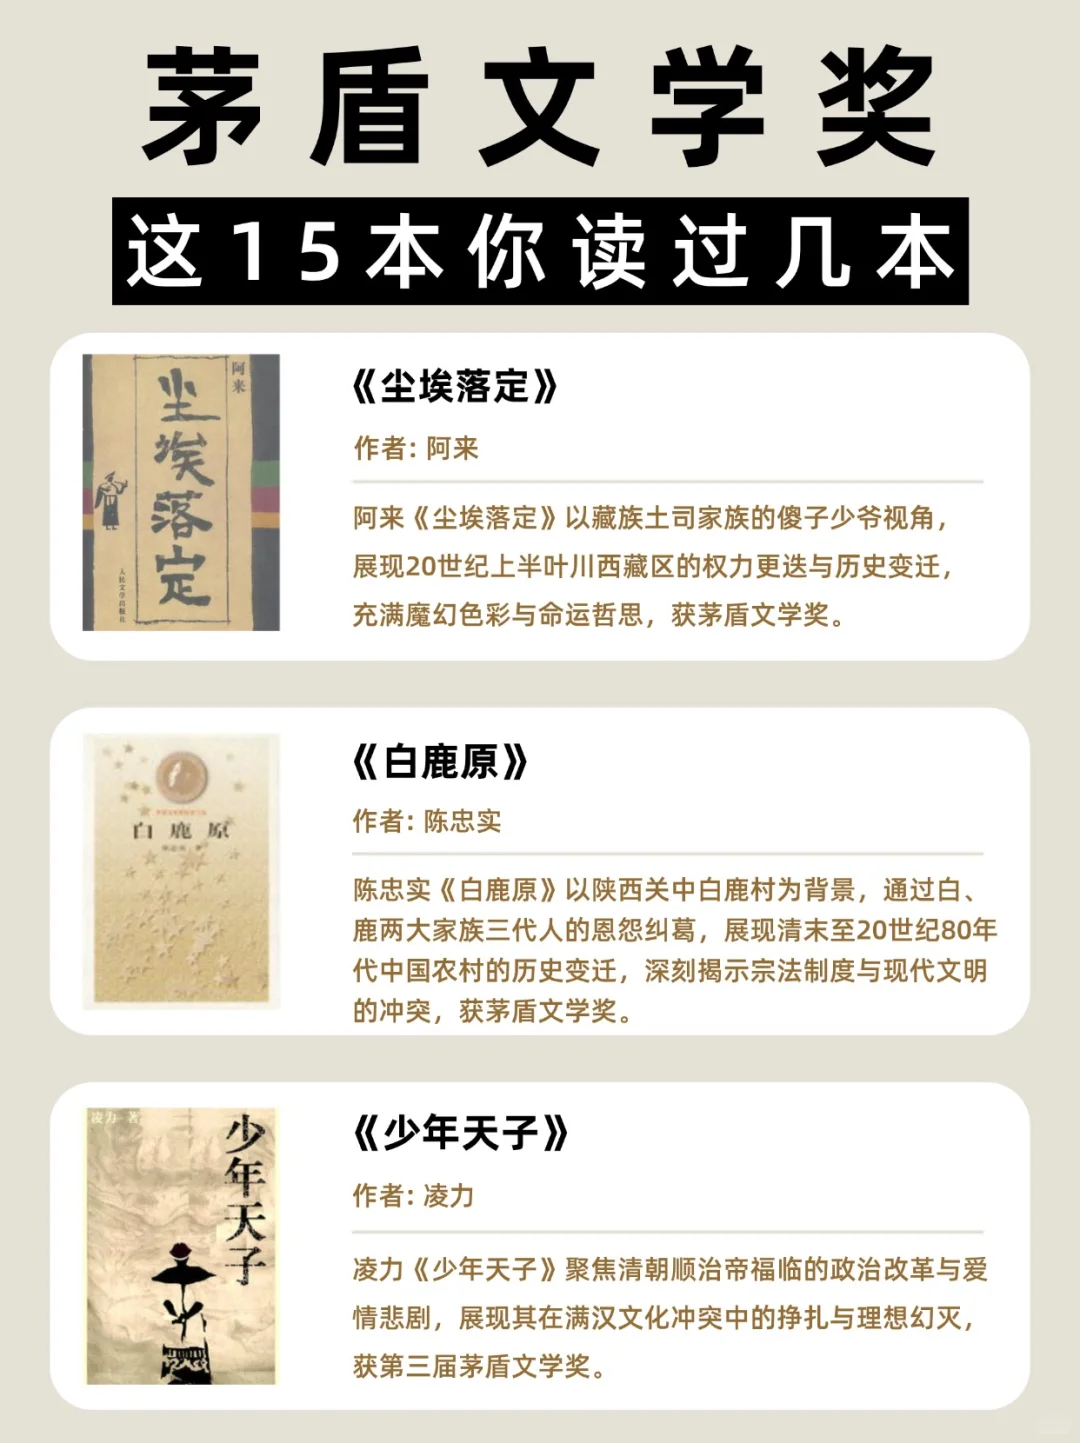 茅盾文学奖
这15本你读过几本
阿来
尘埃落定
人民文学出版社
《尘埃落定》
作者: 阿来
阿来《尘埃落定》以藏族土司家族的傻子少爷视角，
展现20世纪上半叶川西藏区的权力更迭与历史变迁，
充满魔幻色彩与命运哲思，获茅盾文学奖。
白鹿原
《白鹿原》
作者: 陈忠实
陈忠实《白鹿原》以陕西关中白鹿村为背景，通过白、
鹿两大家族三代人的恩怨纠葛，展现清末至20世纪80年
代中国农村的历史变迁，深刻揭示宗法制度与现代文明
的冲突，获茅盾文学奖。
凌力 著
少年天子
《少年天子》
作者: 凌力
凌力《少年天子》聚焦清朝顺治帝福临的政治改革与爱
情悲剧，展现其在满汉文化冲突中的挣扎与理想幻灭，
获第三届茅盾文学奖。